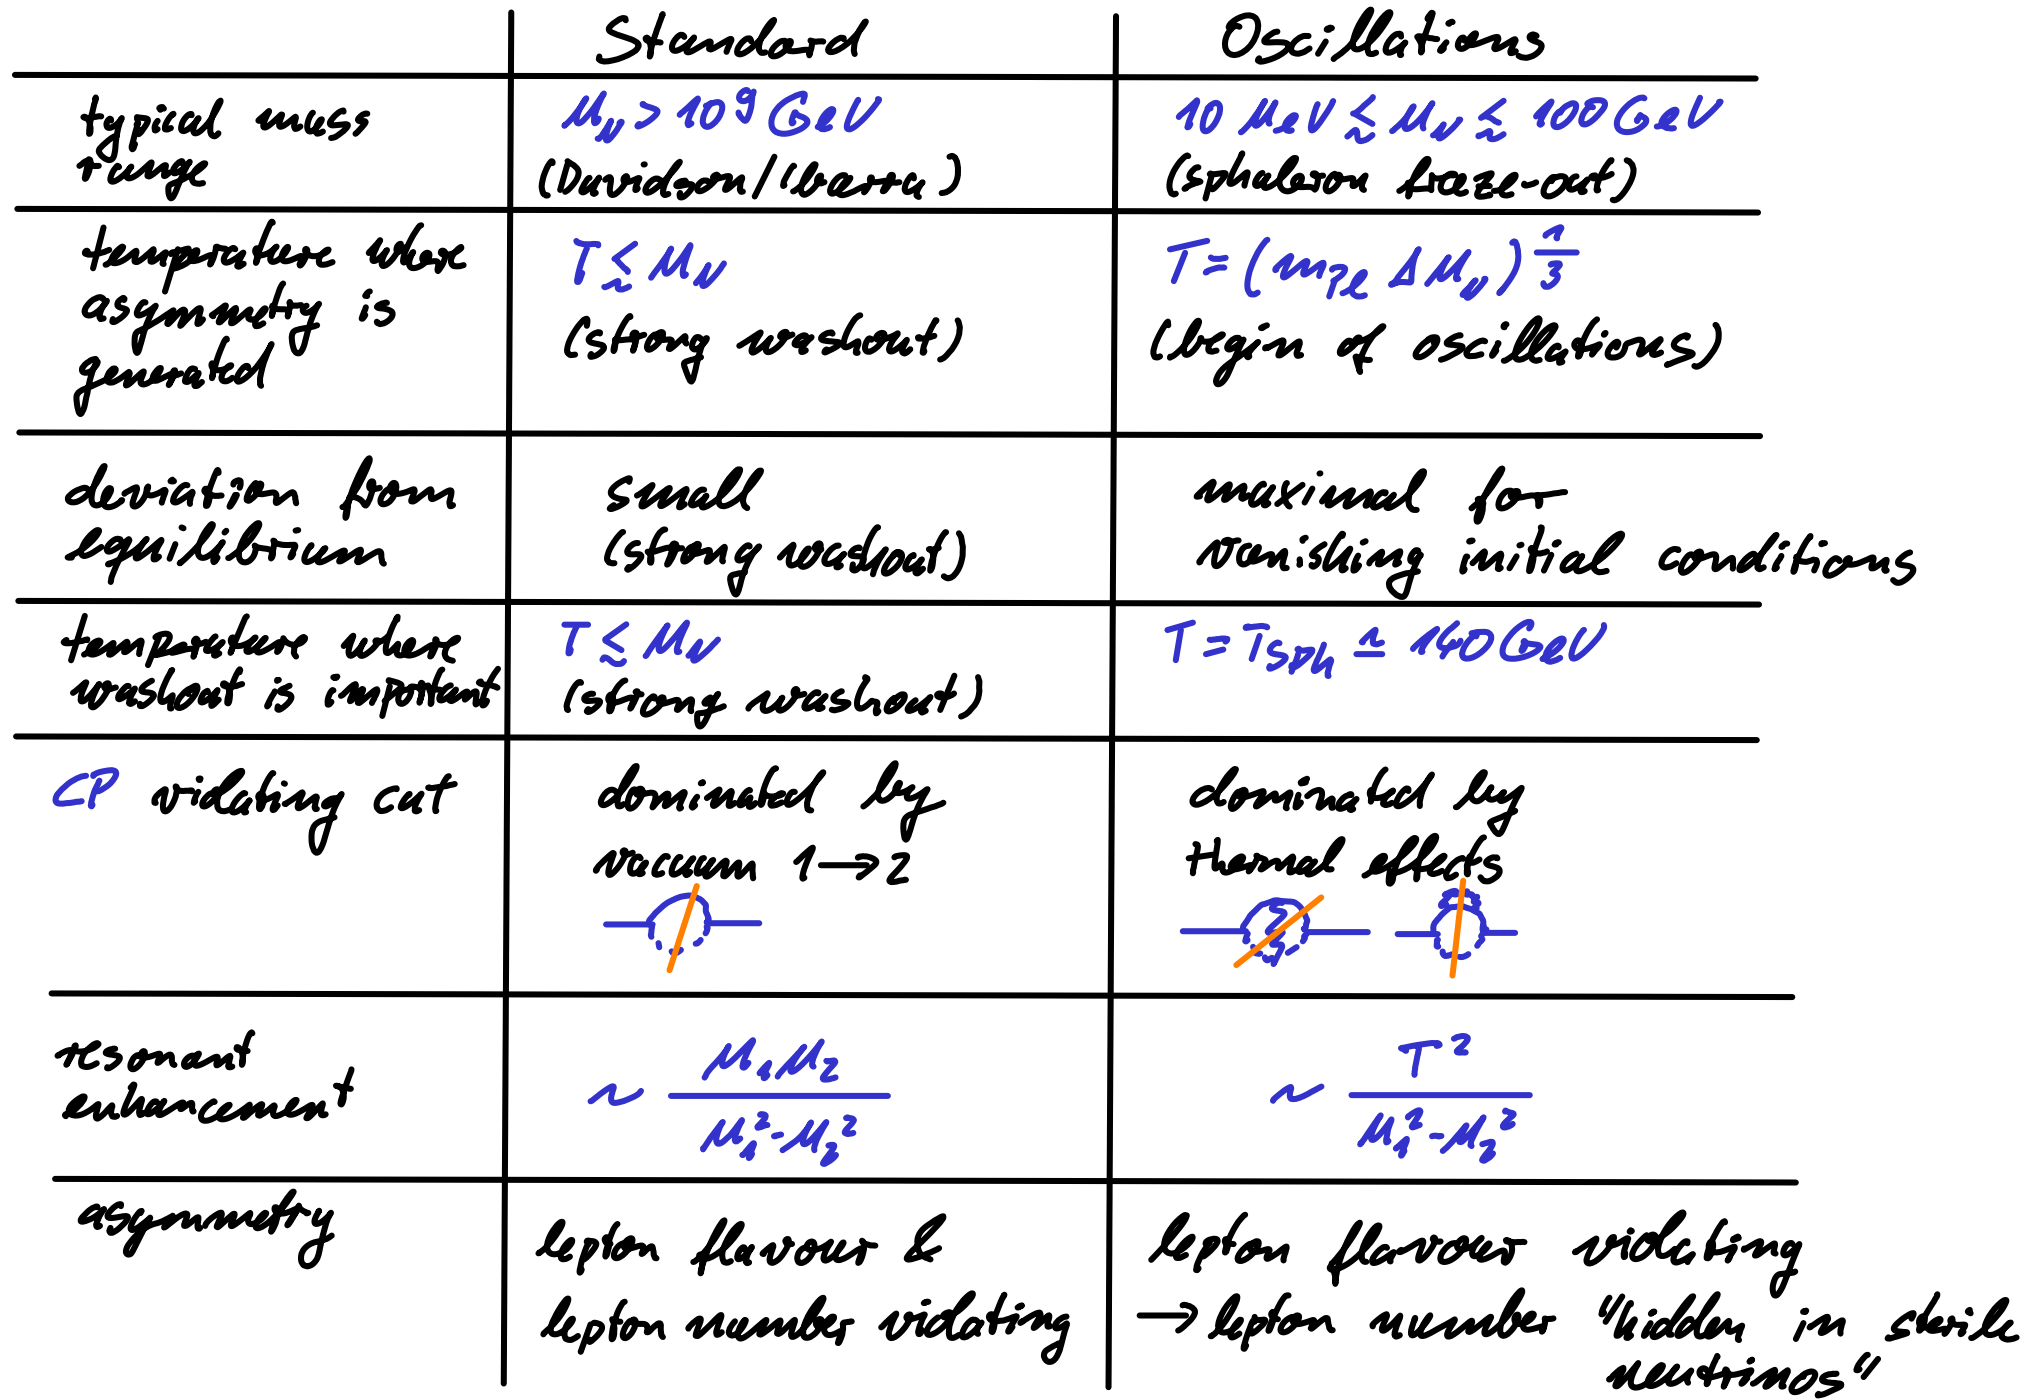 Standard Oscillations
typical mass range
M_N > 10^9 GeV
(Davidson/Ibarra)
10 MeV ≲ M_N ≲ 100 GeV
(sphaleron freeze-out)
temperature where
asymmetry is
generated
T ≲ M_N
(strong washout)
T = (m_Pl ΔM_N)^{1/3}
(begin of oscillations)
deviation from
equilibrium
small
(strong washout)
maximal for
vanishing initial conditions
temperature where
washout is important
T ≲ M_N
(strong washout)
T = T_Sph ≙ 140 GeV
CP violating cut
dominated by
vacuum 1 → 2
dominated by
thermal effects
resonant
enhancement
~ M_1 M_2 / M_1^2 - M_2^2
~ T^2 / M_1^2 - M_2^2
asymmetry
lepton flavour &
lepton number violating
lepton flavour violating
→ lepton number "hidden in sterile
neutrinos"